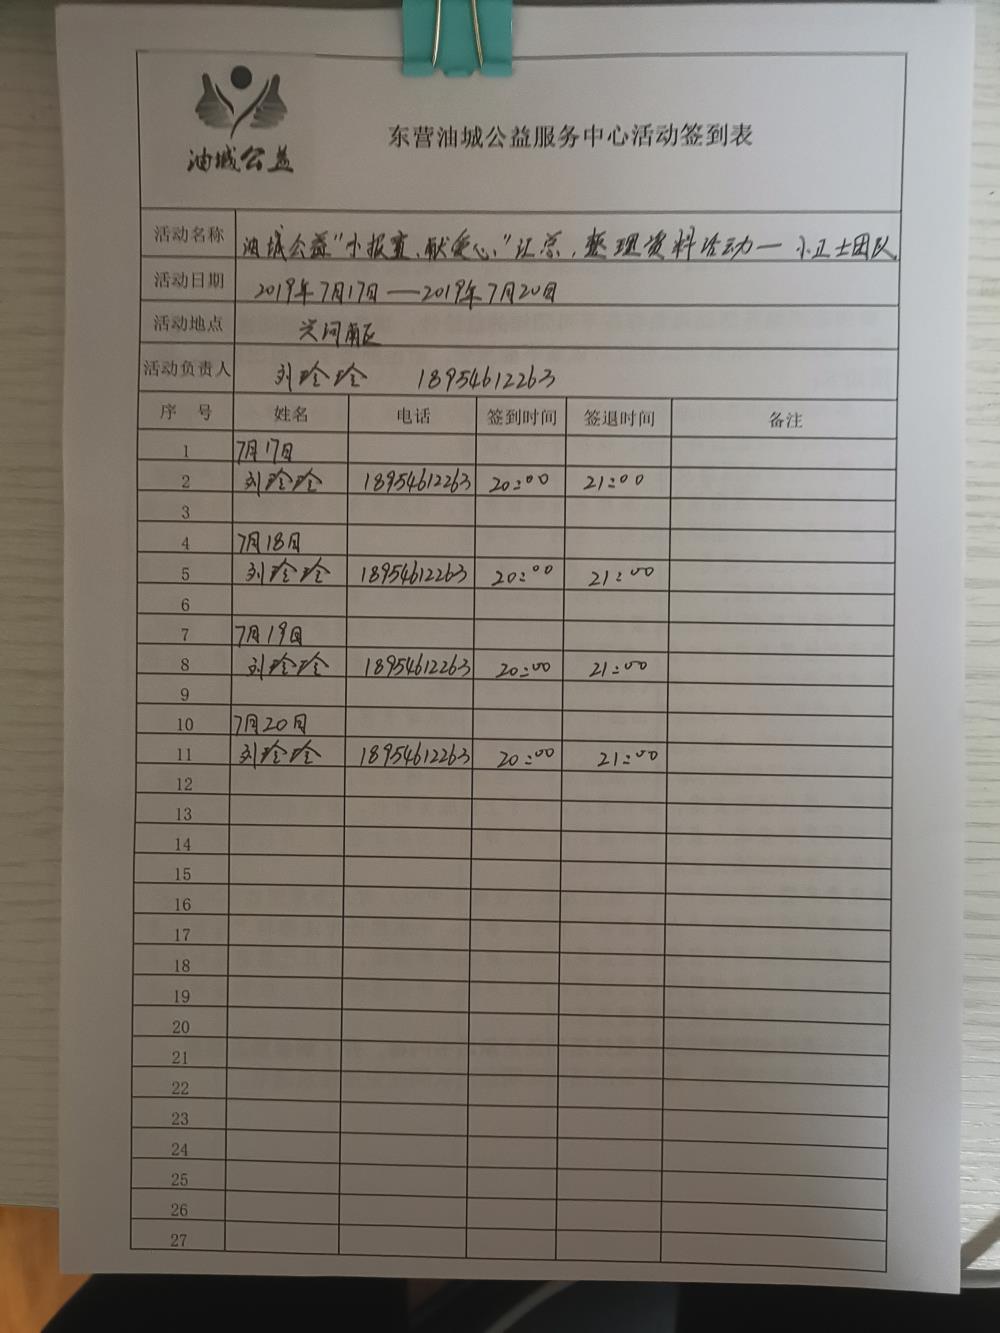 油城公益
东营油城公益服务中心活动签到表
活动名称 油城公益"小报童、献爱心、"汇总,整理资料活动一 小卫士团队
活动日期 2019年7月17日——2019年7月20日
活动地点 兴河南区
活动负责人 刘玲玲 18954612263
序 号 姓名 电话 签到时间 签退时间 备注
1 7月17日
2 刘玲玲 18954612263 20:00 21:00
3
4 7月18日
5 刘玲玲 18954612263 20:00 21:00
6
7 7月19日
8 刘玲玲 18954612263 20:00 21:00
9
10 7月20日
11 刘玲玲 18954612263 20:00 21:00
12
13
14
15
16
17
18
19
20
21
22
23
24
25
26
27